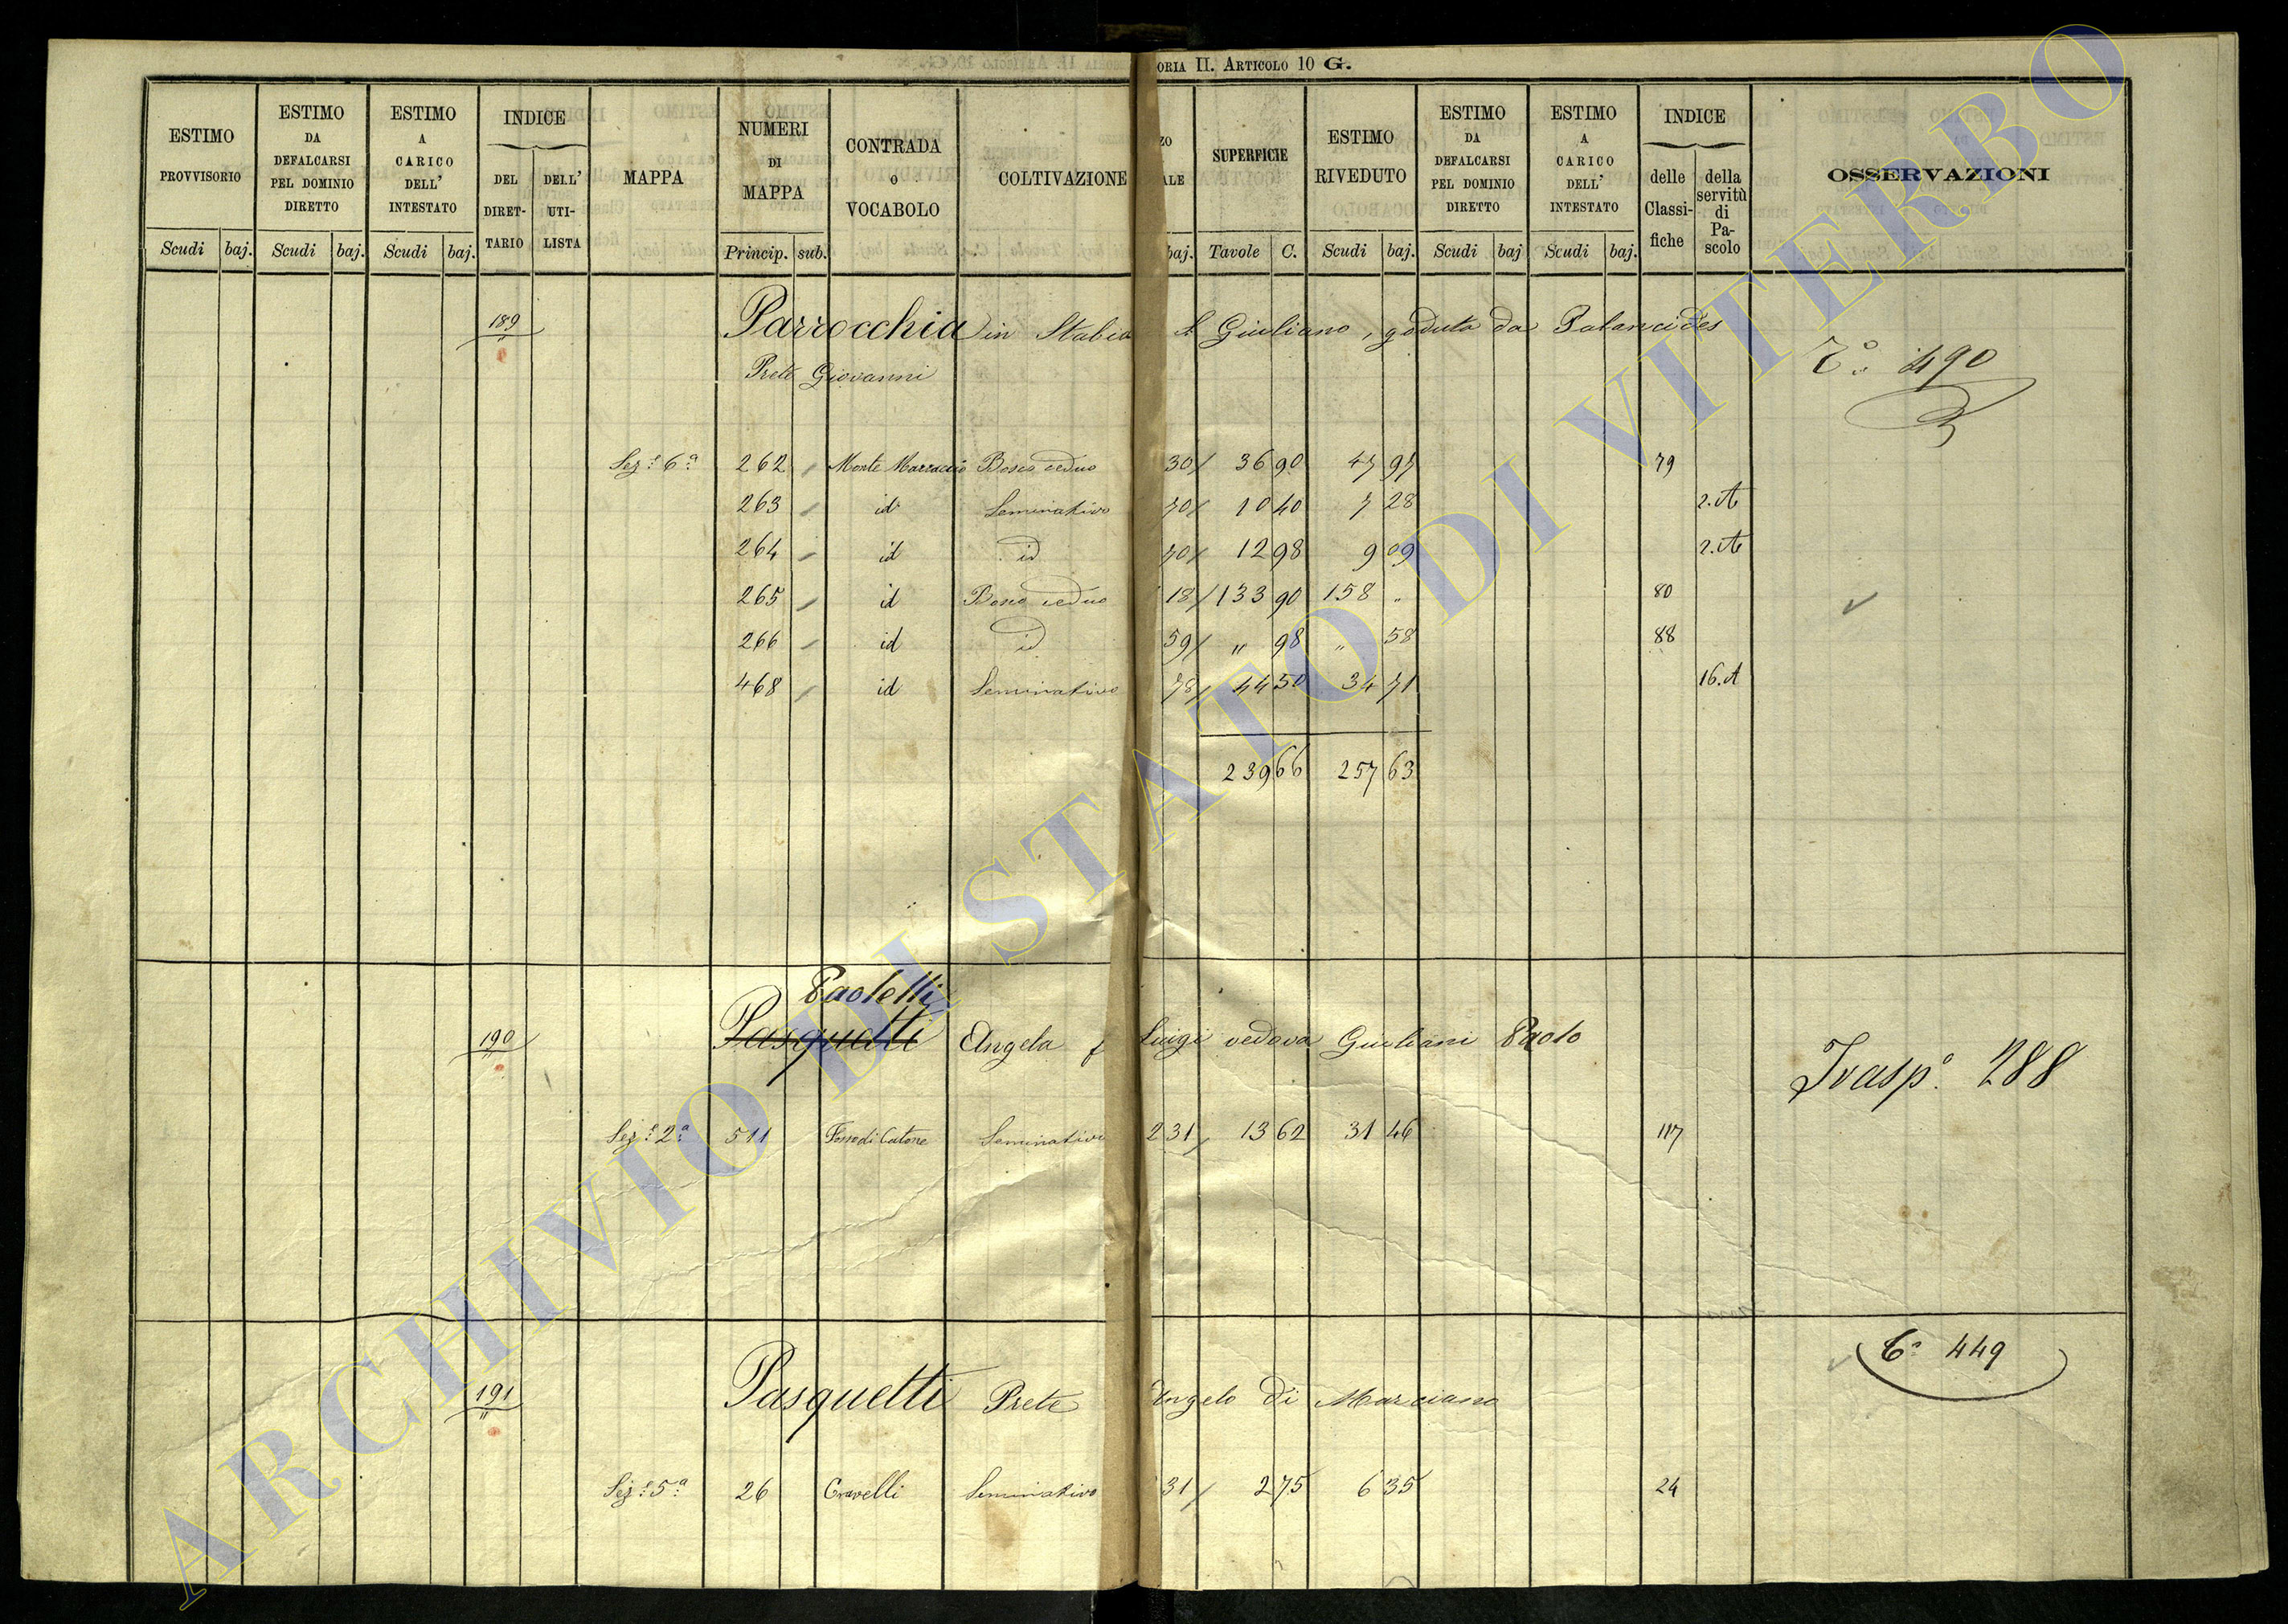 ORIA II. ARTICOLO 10 G.
ESTIMO PROVVISORIO Scudi baj.
ESTIMO DA DEFALCARSI PEL DOMINIO DIRETTO Scudi baj.
ESTIMO A CARICO DELL' INTESTATO Scudi baj.
INDICE DEL DIRET-TARIO DELL' UTI-LISTA
MAPPA
NUMERI DI MAPPA Princip. sub.
CONTRADA O VOCABOLO
COLTIVAZIONE
ZO ALE baj.
SUPERFICIE Tavole C.
ESTIMO RIVEDUTO Scudi baj.
ESTIMO DA DEFALCARSI PEL DOMINIO DIRETTO Scudi baj
ESTIMO A CARICO DELL' INTESTATO Scudi baj.
INDICE delle Classi-fiche della servitù di Pa-scolo
OSSERVAZIONI
189 Parrocchia in Stabia S Giuliano, goduta da
Prete Giovanni
T.º 490
Sez.e 6.a 262 Monte Marraccio Bosco ceduo 30 36 90 47 97 79
263 id Seminativo 70 10 40 7 28 2.A
264 id id 70 12 98 9 09 2.A
265 id Bosco ceduo 18 133 90 158 " 80
266 id id 59 " 98 " 58 88
468 id Seminativo 78 44 50 34 71 16.A
239 66 257 63
Paoletti
190 Pasquetti Angela f Luigi vedova Giuliani Paolo
Trasp.º 288
Sez.e 2.a 511 Fosso di Catone Seminativo 2 31 13 62 31 46 117
T.º 449
191 Pasquetti Prete Angelo di Marciano
Sez.e 5.a 26 Cravelli Seminativo 31 2 75 6 35 24
ARCHIVIO DI STATO DI VITERBO